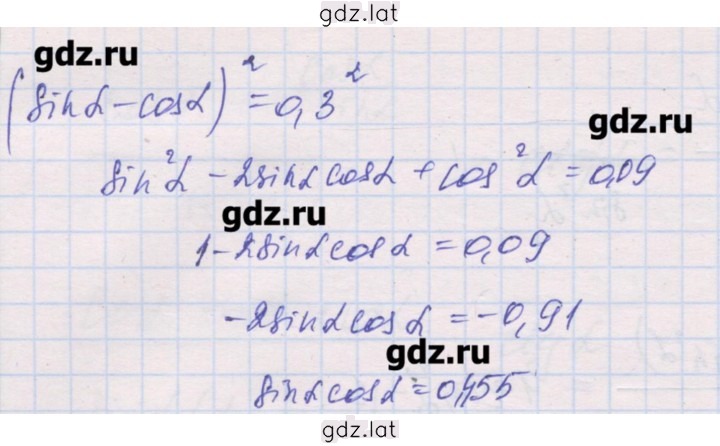 gdz.lat
gdz.ru
(sinα - cosα)² = 0,3²
gdz.ru
sin²α - 2sinα cosα + cos²α = 0,09
gdz.ru
1 - 2sinα cosα = 0,09
-2sinα cosα = -0,91
gdz.ru
sinα cosα = 0,455
gdz.lat